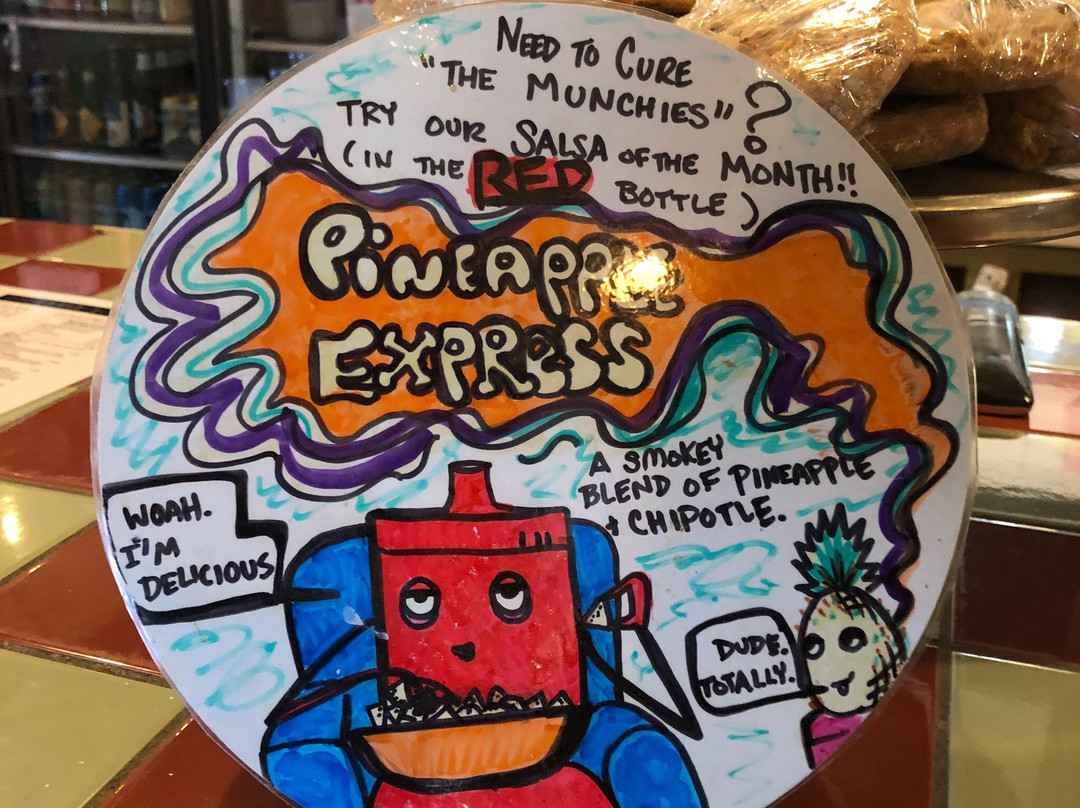 NEED TO CURE
"THE MUNCHIES"?
TRY OUR SALSA OF THE MONTH!!
(IN THE RED BOTTLE)
PINEAPPLE
EXPRESS
A SMOKEY
BLEND OF PINEAPPLE
+ CHIPOTLE.
WOAH.
I'M
DELICIOUS
DUDE.
TOTALLY.